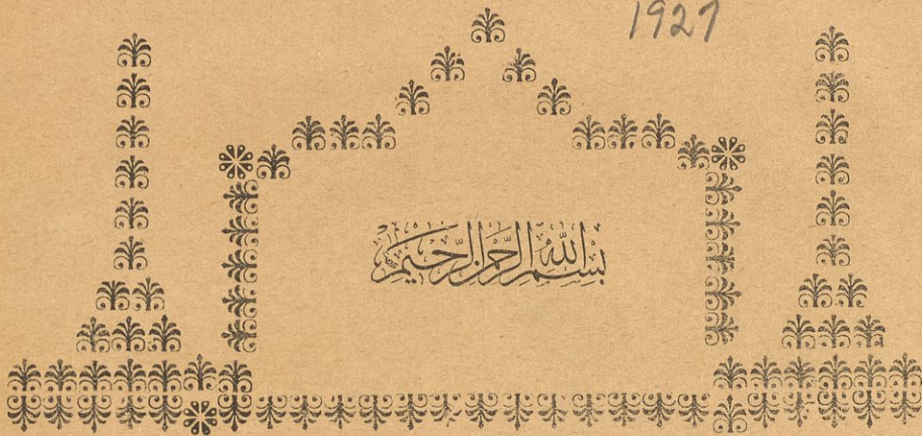 1927
بسم الله الرحمن الرحيم